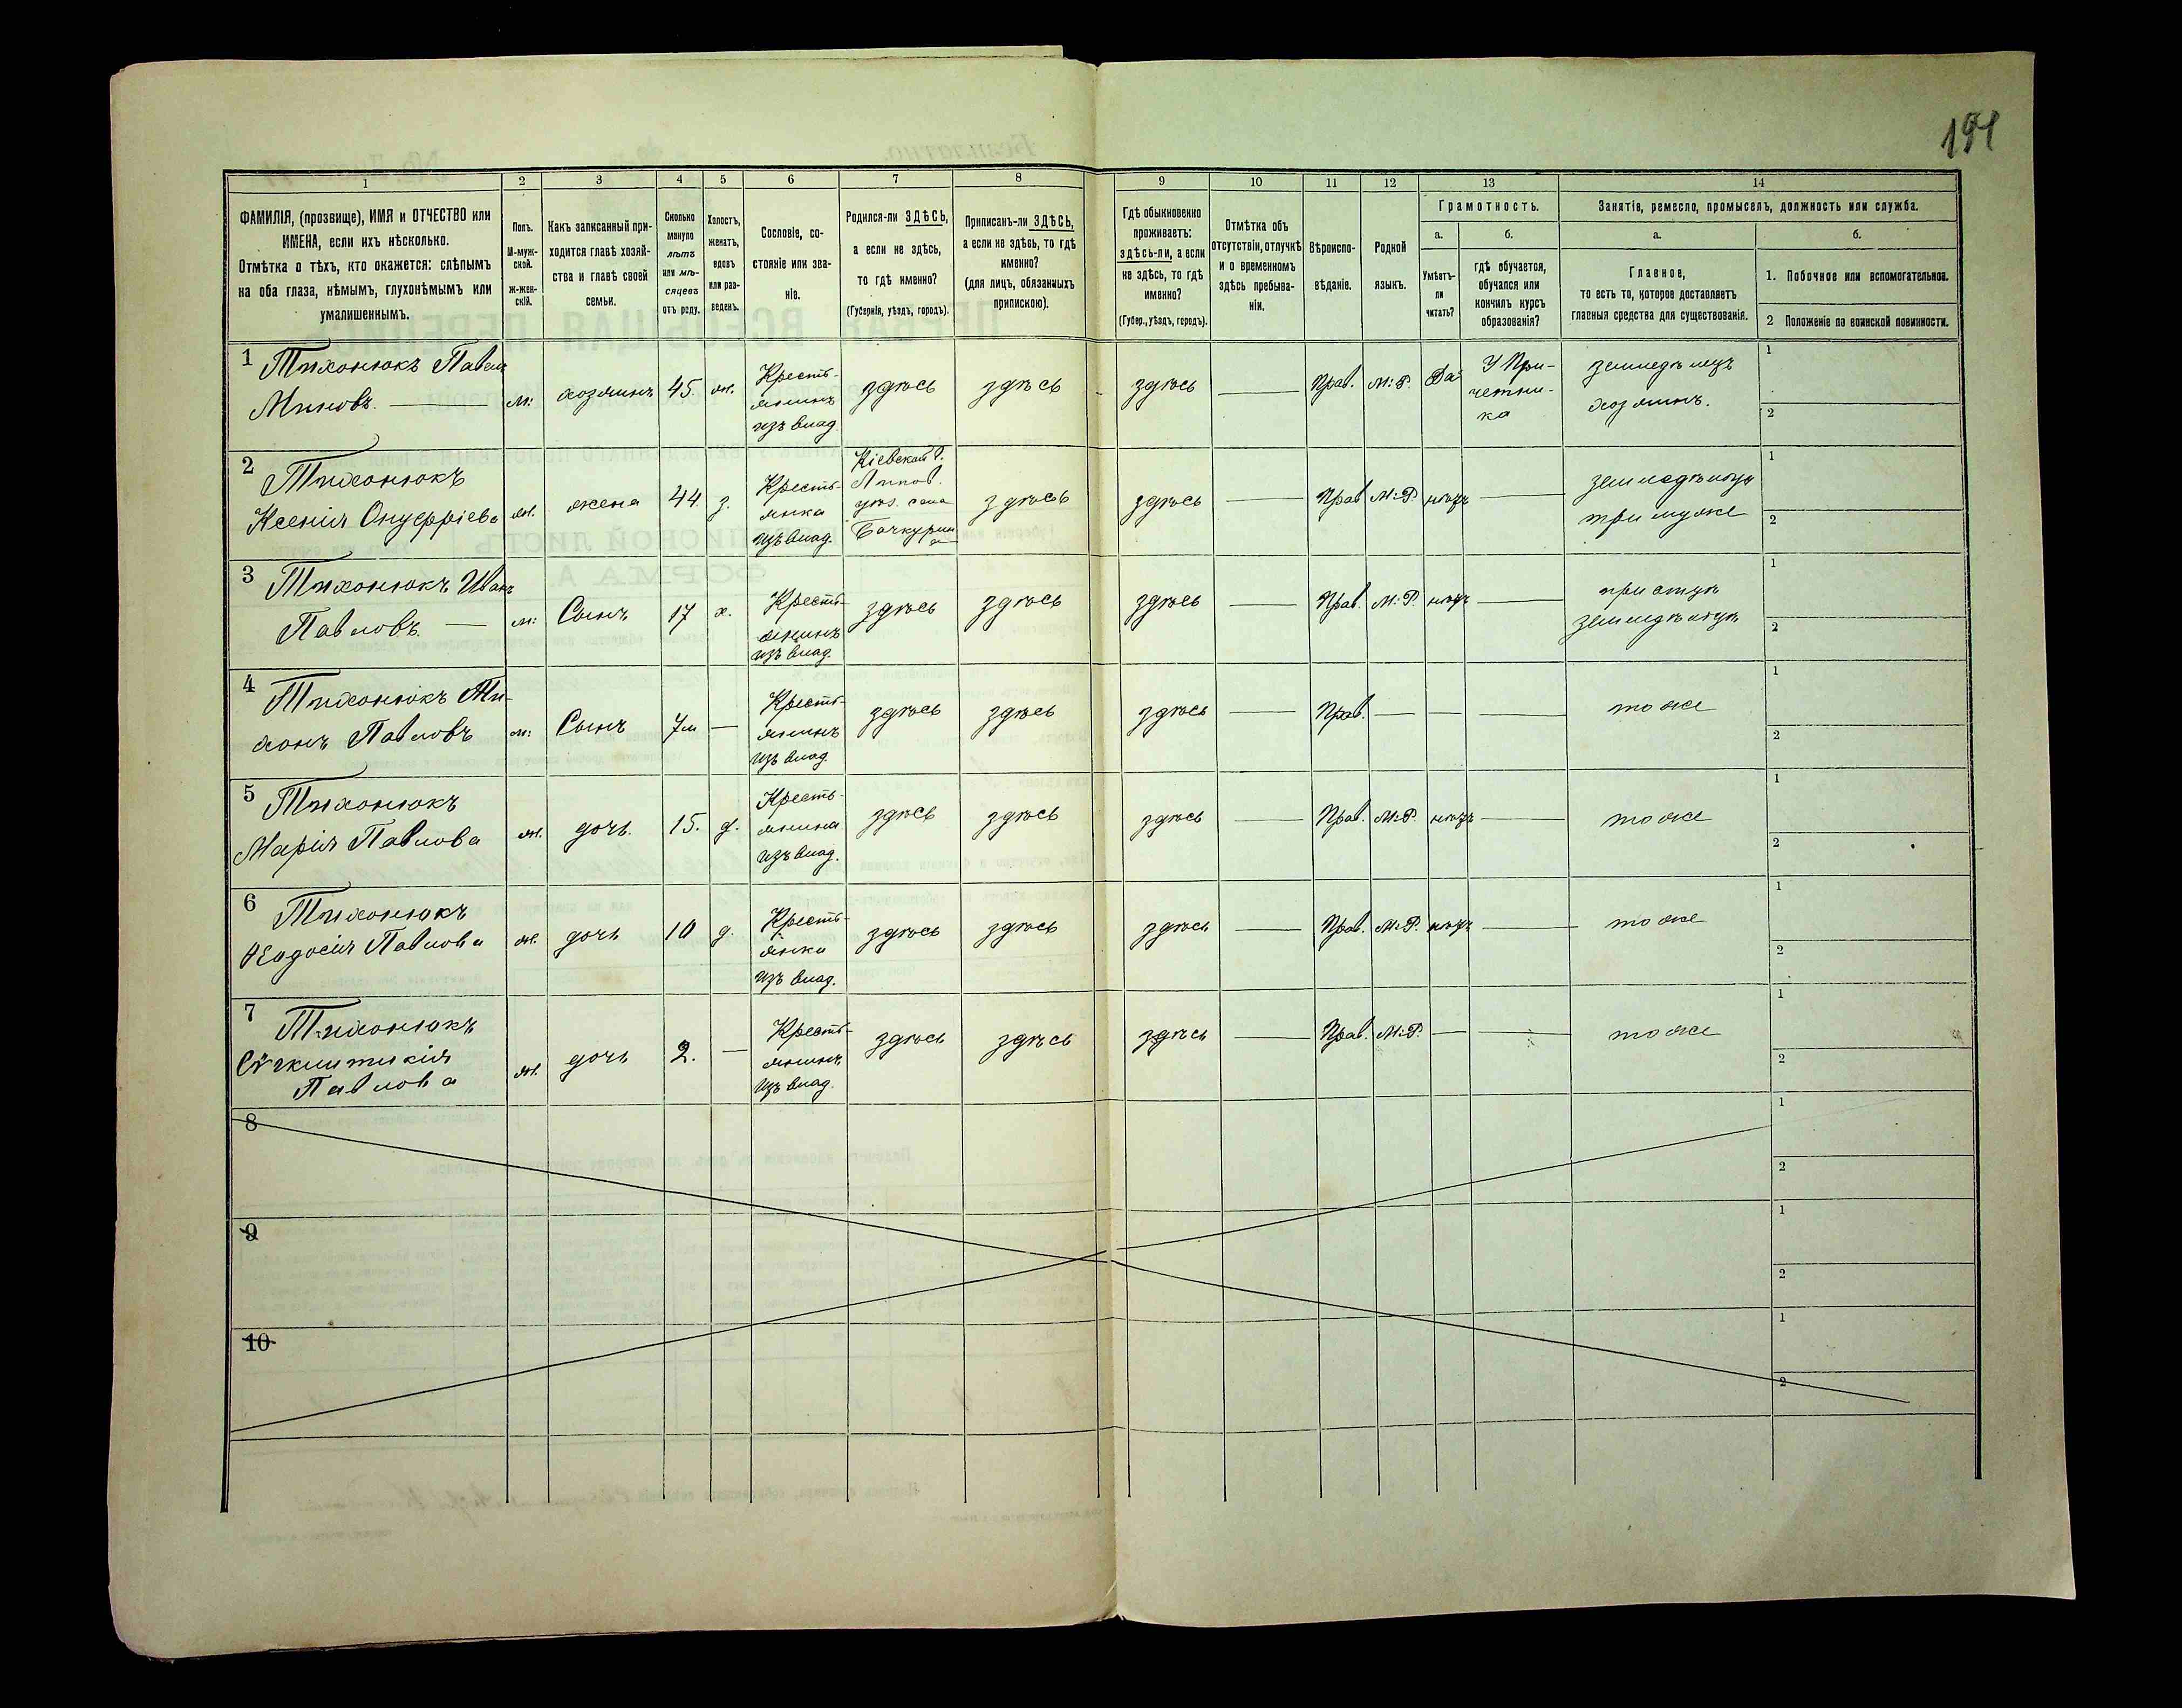 194
1 2 3 4 5 6 7 8 9 10 11 12 13 14
ФАМИЛІЯ, (прозвище), ИМЯ и ОТЧЕСТВО или
ИМЕНА, если ихъ нѣсколько.
Отмѣтка о тѣхъ, кто окажется: слѣпымъ
на оба глаза, нѣмымъ, глухонѣмымъ или
умалишеннымъ.
Полъ.
М-муж-
ской.
Ж-жен-
скій.
Какъ записанный при-
ходится главѣ хозяй-
ства и главѣ своей
семьи.
Сколько
минуло
лѣтъ
или мѣ-
сяцевъ
отъ роду.
Холостъ,
женатъ,
вдовъ
или раз-
веденъ.
Сословіе, со-
стояніе или зва-
ніе.
Родился-ли ЗДѢСЬ,
а если не здѣсь,
то гдѣ именно?
(Губернія, уѣздъ, городъ).
Приписанъ-ли ЗДѢСЬ,
а если не здѣсь, то гдѣ
именно?
(для лицъ, обязанныхъ
припискою).
Гдѣ обыкновенно
проживаетъ:
здѣсь-ли, а если
не здѣсь, то гдѣ
именно?
(Губер., уѣздъ, городъ).
Отмѣтка объ
отсутствіи, отлучкѣ
и о временномъ
здѣсь пребыва-
ніи.
Вѣроиспо-
вѣданіе.
Родной
языкъ.
Грамотность.
а.
Умѣетъ-
ли
читать?
б.
гдѣ обучается,
обучался или
кончилъ курсъ
образованія?
Занятіе, ремесло, промыселъ, должность или служба.
а.
Главное,
то есть то, которое доставляетъ
главныя средства для существованія.
б.
1. Побочное или вспомогательное.
2 Положеніе по воинской повинности.
1 Тихонюкъ Павелъ
Миновъ.
м:
хозяинъ
45.
ж.
Кресть-
янинъ
изъ влад.
здѣсь
здѣсь
здѣсь
Прав.
М:Р.
Да
У При-
четни-
ка
земледѣлецъ
хозяинъ.
1
2
2 Тихонюкъ
Ксенія Онуфріева
ж.
жена
44
з.
Кресть-
янка
изъ влад.
Кіевской г.
Липов.
уѣз. села
здѣсь
здѣсь
Прав
М:Р.
нѣтъ
при мужѣ
1
2
3 Тихонюкъ Иванъ
Павловъ.
м:
Сынъ
17
х.
Кресть-
янинъ
изъ влад.
здѣсь
здѣсь
здѣсь
Прав.
М:Р.
нѣтъ
при отцѣ
1
2
4 Тихонюкъ Ти-
хонъ Павловъ
м:
Сынъ
7м
Кресть-
янинъ
изъ влад.
здѣсь
здѣсь
здѣсь
Прав.
тоже
1
2
5 Тихонюкъ
Марія Павлова
ж.
дочь.
15.
д.
Кресть-
янина
изъ влад.
здѣсь
здѣсь
здѣсь
Прав.
М:Р.
нѣтъ
тоже
1
2
6 Тихонюкъ
Ѳеодосія Павлова
ж.
дочь
10
д.
Кресть-
янка
изъ влад.
здѣсь
здѣсь
здѣсь
Прав.
М:Р.
нѣтъ
тоже
1
2
7 Тихонюкъ
Павлова
ж.
дочь
2.
Кресть-
янинъ
изъ влад.
здѣсь
здѣсь
здѣсь
Прав.
М:Р.
тоже
1
2
8
1
2
9
1
2
10
1
2